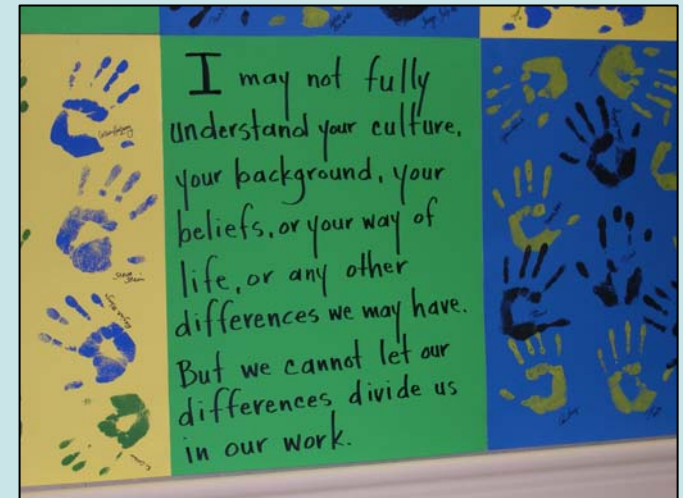 I may not fully
understand your culture,
your background, your
beliefs, or your way of
life, or any other
differences we may have.
But we cannot let our
differences divide us
in our work.